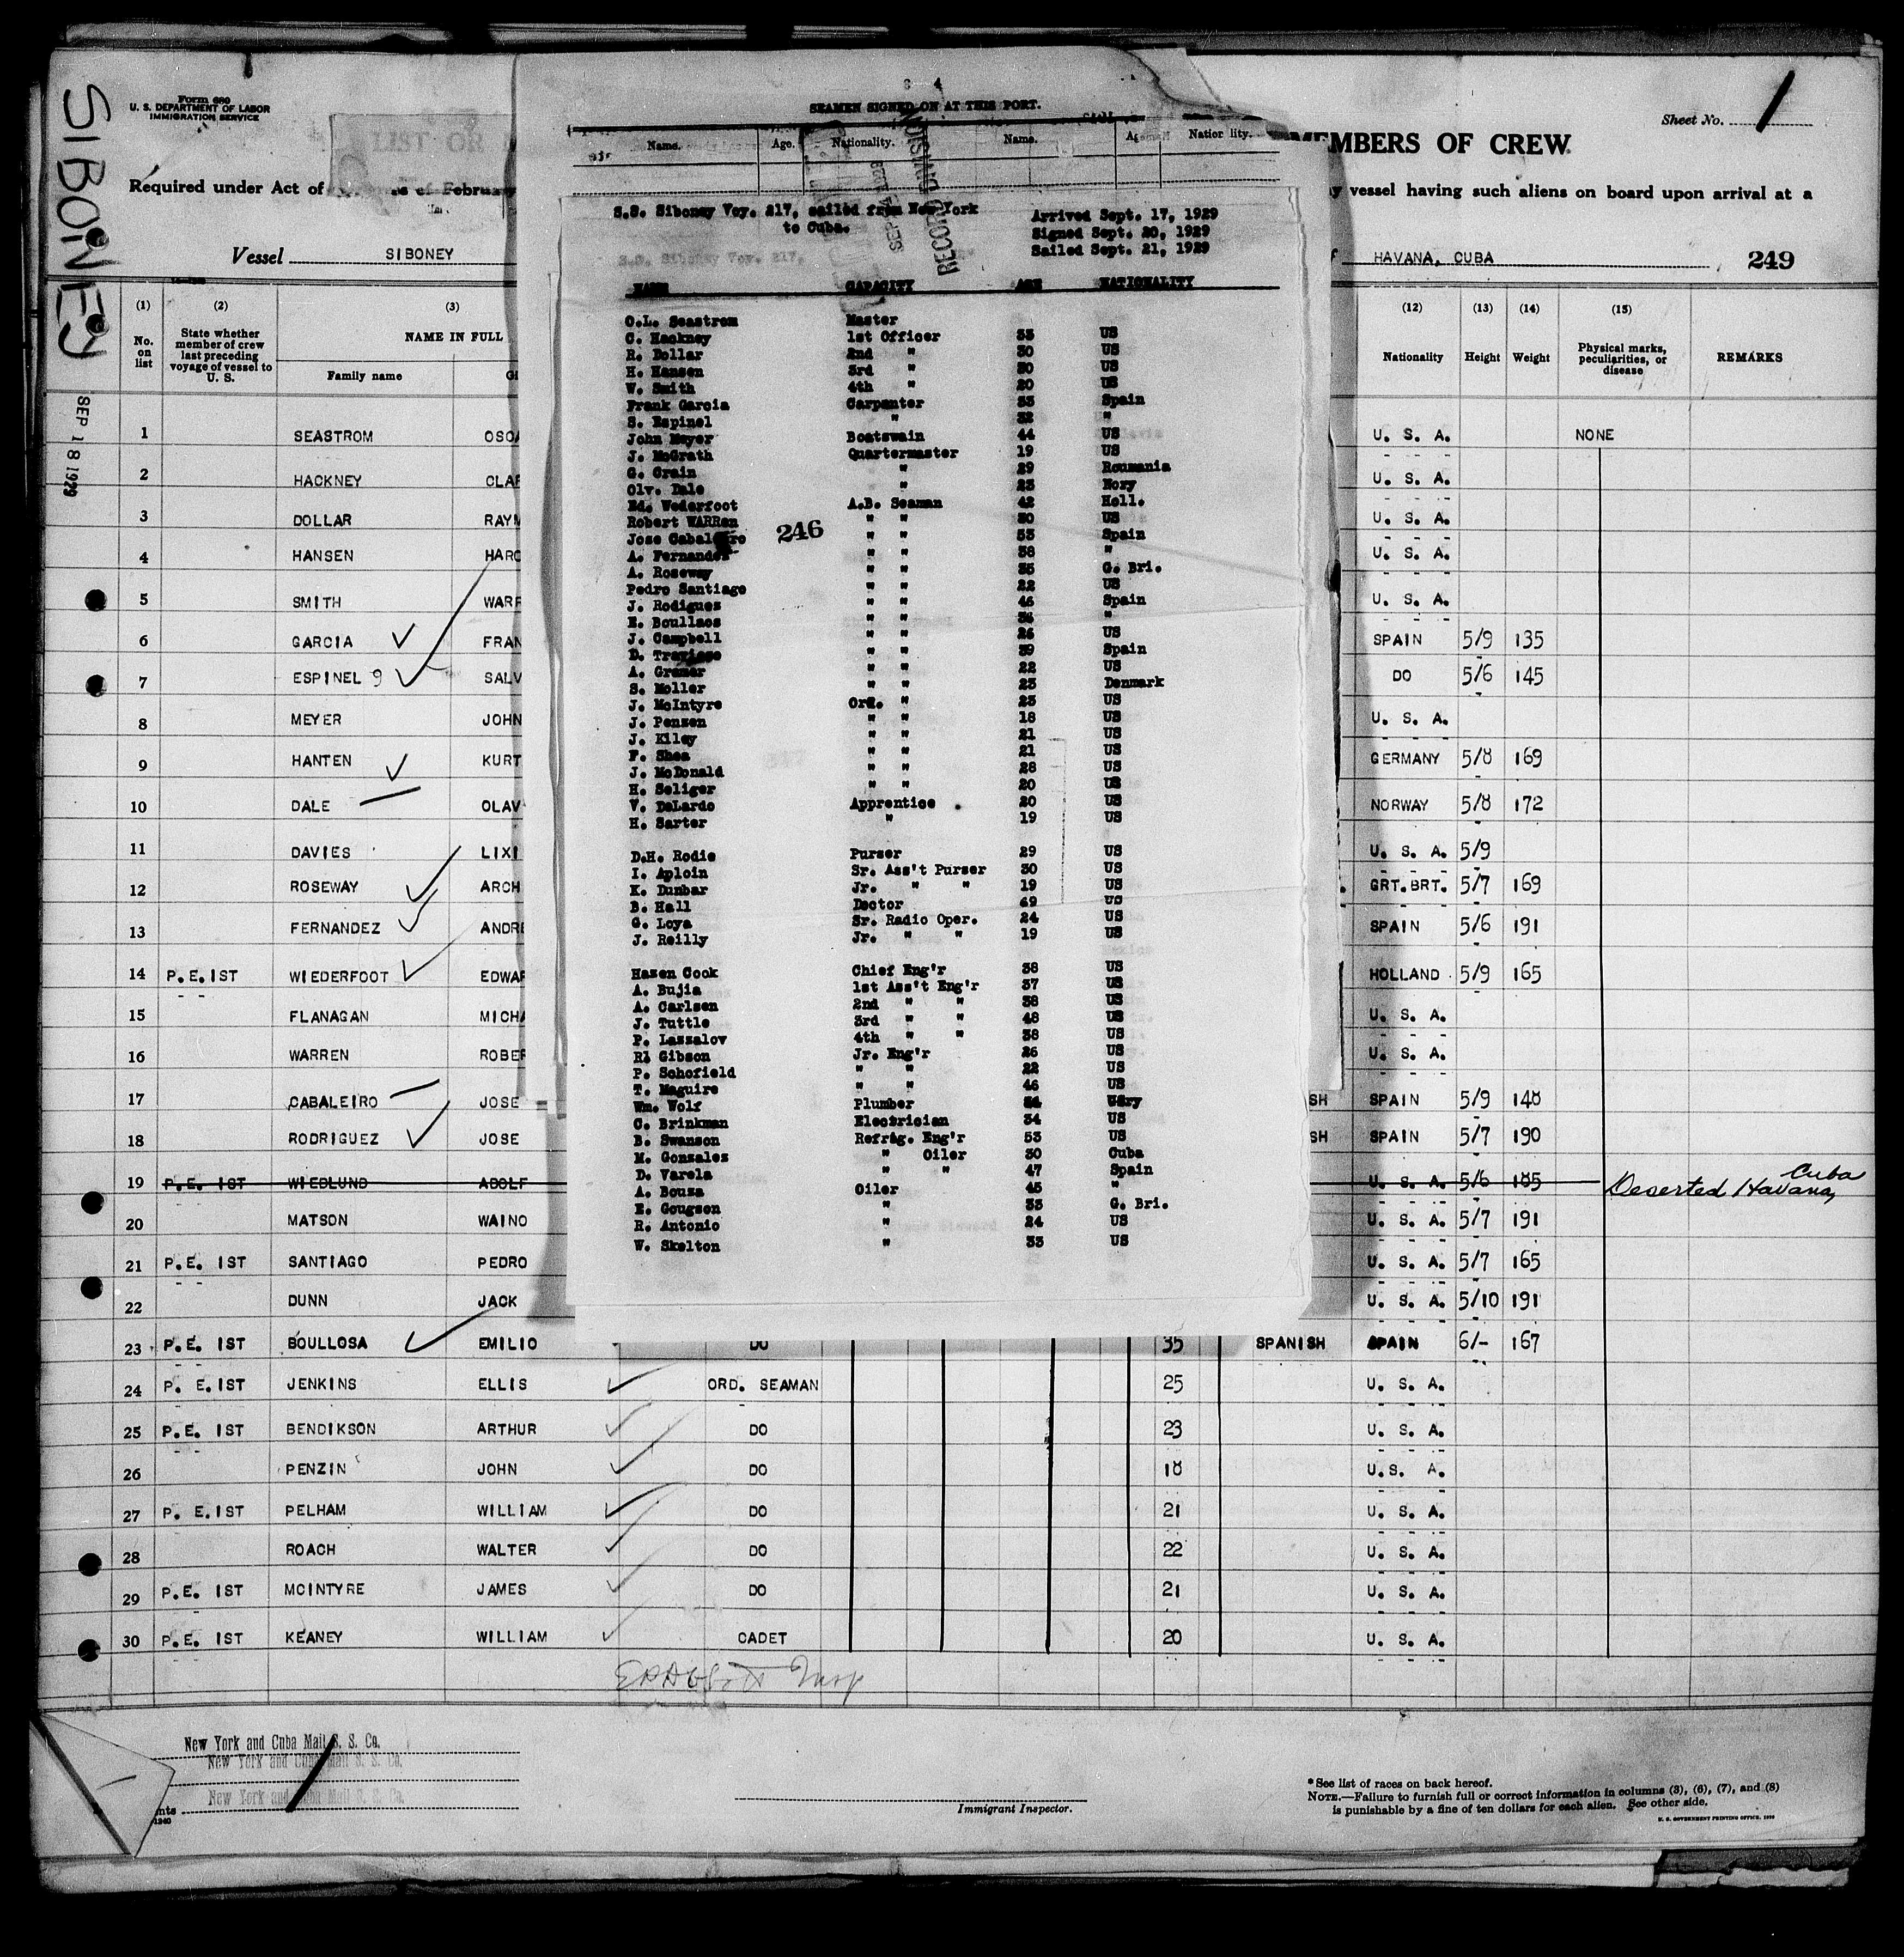 SIBONEY
SEP 18 1929
Form 680
U. S. DEPARTMENT OF LABOR
IMMIGRATION SERVICE
LIST OR
Required under Act of
of February
Vessel SIBONEY
(1) (2) (3)
No. on list
State whether member of crew last preceding voyage of vessel to U. S.
NAME IN FULL
Family name
Sheet No. 1
MEMBERS OF CREW
vessel having such aliens on board upon arrival at a
HAVANA, CUBA
249
(12) (13) (14) (15)
Nationality Height Weight
Physical marks, peculiarities, or disease
REMARKS
SEAMEN SIGNED ON AT THIS PORT.
Name. Age. Nationality. Name. Nationality.
RECORD DIVISION
S.S. Siboney Voy. 217, sailed from New York
to Cuba.
Arrived Sept. 17, 1929
Signed Sept. 20, 1929
Sailed Sept. 21, 1929
NAME CAPACITY AGE NATIONALITY
O.L. Seastrom Master
C. Hackney 1st Officer 33 US
R. Dollar 2nd " 30 US
H. Hansen 3rd " 30 US
W. Smith 4th " 20 US
Frank Garcia Carpenter 33 Spain
S. Espinel " 32 "
John Meyer Boatswain 44 US
J. McGrath Quartermaster 19 US
G. Crain " 29 Roumania
Olv. Dale " 23 Nory
Ed. Wederfoot A.B. Seaman 42 Holl.
Robert WARRen " " 30 US
Jose Cabaleiro " " 33 Spain
246
A. Fernandez " " 38 "
A. Roseway " " 35 G. Bri.
Pedro Santiago " " 22 US
J. Rodigues " " 46 Spain
E. Boullaos " " 36 "
J. Campbell " " 26 US
D. " " 39 Spain
A. Gramer " " 22 US
S. Moller " " 23 Denmark
J. McIntyre Ord. " 23 US
J. Penzen " " 18 US
J. Kiley " " 21 US
F. Shea " " 21 US
J. McDonald " " 28 US
H. Seliger " " 20 US
V. DeLardo Apprentice 20 US
H. Sarter " 19 US
D.H. Rodie Purser 29 US
I. Aploin Sr. Ass't Purser 30 US
K. Dunbar Jr. " " 19 US
B. Hall Doctor 69 US
G. Loya Sr. Radio Oper. 24 US
J. Reilly Jr. " " 19 US
Hazen Cook Chief Eng'r 38 US
A. Bujia 1st Ass't Eng'r 37 US
A. Carlsen 2nd " " 38 US
J. Tuttle 3rd " " 48 US
P. Lazzalov 4th " " 38 US
Rl Gibson Jr. Eng'r 26 US
P. Schofield " " 22 US
T. Maguire " " 46 US
Wm. Wolf Plumber
C. Brinkman Electrician 34 US
B. Swanson Refrig. Eng'r 53 US
M. Gonzales " Oiler 30 Cuba
D. Varela " " 47 Spain
A. Bouza Oiler 45 "
E. Gougson " 33 G. Bri.
R. Antonio " 24 US
W. Skelton " 33 US
1 SEASTROM U. S. A. NONE
2 HACKNEY U. S. A.
3 DOLLAR U. S. A.
4 HANSEN U. S. A.
5 SMITH U. S. A.
6 GARCIA SPAIN 5/9 135
7 ESPINEL 9 DO 5/6 145
8 MEYER JOHN U. S. A.
9 HANTEN KURT GERMANY 5/8 169
10 DALE OLAV NORWAY 5/8 172
11 DAVIES U. S. A. 5/9
12 ROSEWAY ARCH GRT.BRT. 5/7 169
13 FERNANDEZ SPAIN 5/6 191
14 P.E.1ST WIEDERFOOT HOLLAND 5/9 165
15 FLANAGAN U. S. A.
16 WARREN U. S. A.
17 CABALEIRO JOSE SPAIN 5/9 148
18 RODRIGUEZ JOSE SPAIN 5/7 190
19 P.E. 1ST WIEDLUND ADOLF U. S. A. 5/6 185 Deserted Havana, Cuba
20 MATSON WAINO U. S. A. 5/7 191
21 P.E. 1ST SANTIAGO PEDRO U. S. A. 5/7 165
22 DUNN JACK U. S. A. 5/10 191
23 P.E. 1ST BOULLOSA EMILIO DO 35 SPANISH SPAIN 6/- 167
24 P. E.1ST JENKINS ELLIS ORD. SEAMAN 25 U. S. A.
25 P.E. 1ST BENDIKSON ARTHUR DO 23 U. S. A.
26 PENZIN JOHN DO 18 U.S. A.
27 P. E.1ST PELHAM WILLIAM DO 21 U. S. A.
28 ROACH WALTER DO 22 U. S. A.
29 P.E. 1ST MCINTYRE JAMES DO 21 U. S. A.
30 P.E. 1ST KEANEY WILLIAM CADET 20 U. S. A.
New York and Cuba Mail S. S. Co.
New York and Cuba Mail S. S. Co.
New York and Cuba Mail S. S. Co.
Immigrant Inspector.
*See list of races on back hereof.
NOTE.—Failure to furnish full or correct information in columns (3), (6), (7), and (8)
is punishable by a fine of ten dollars for each alien. See other side.
U. S. GOVERNMENT PRINTING OFFICE